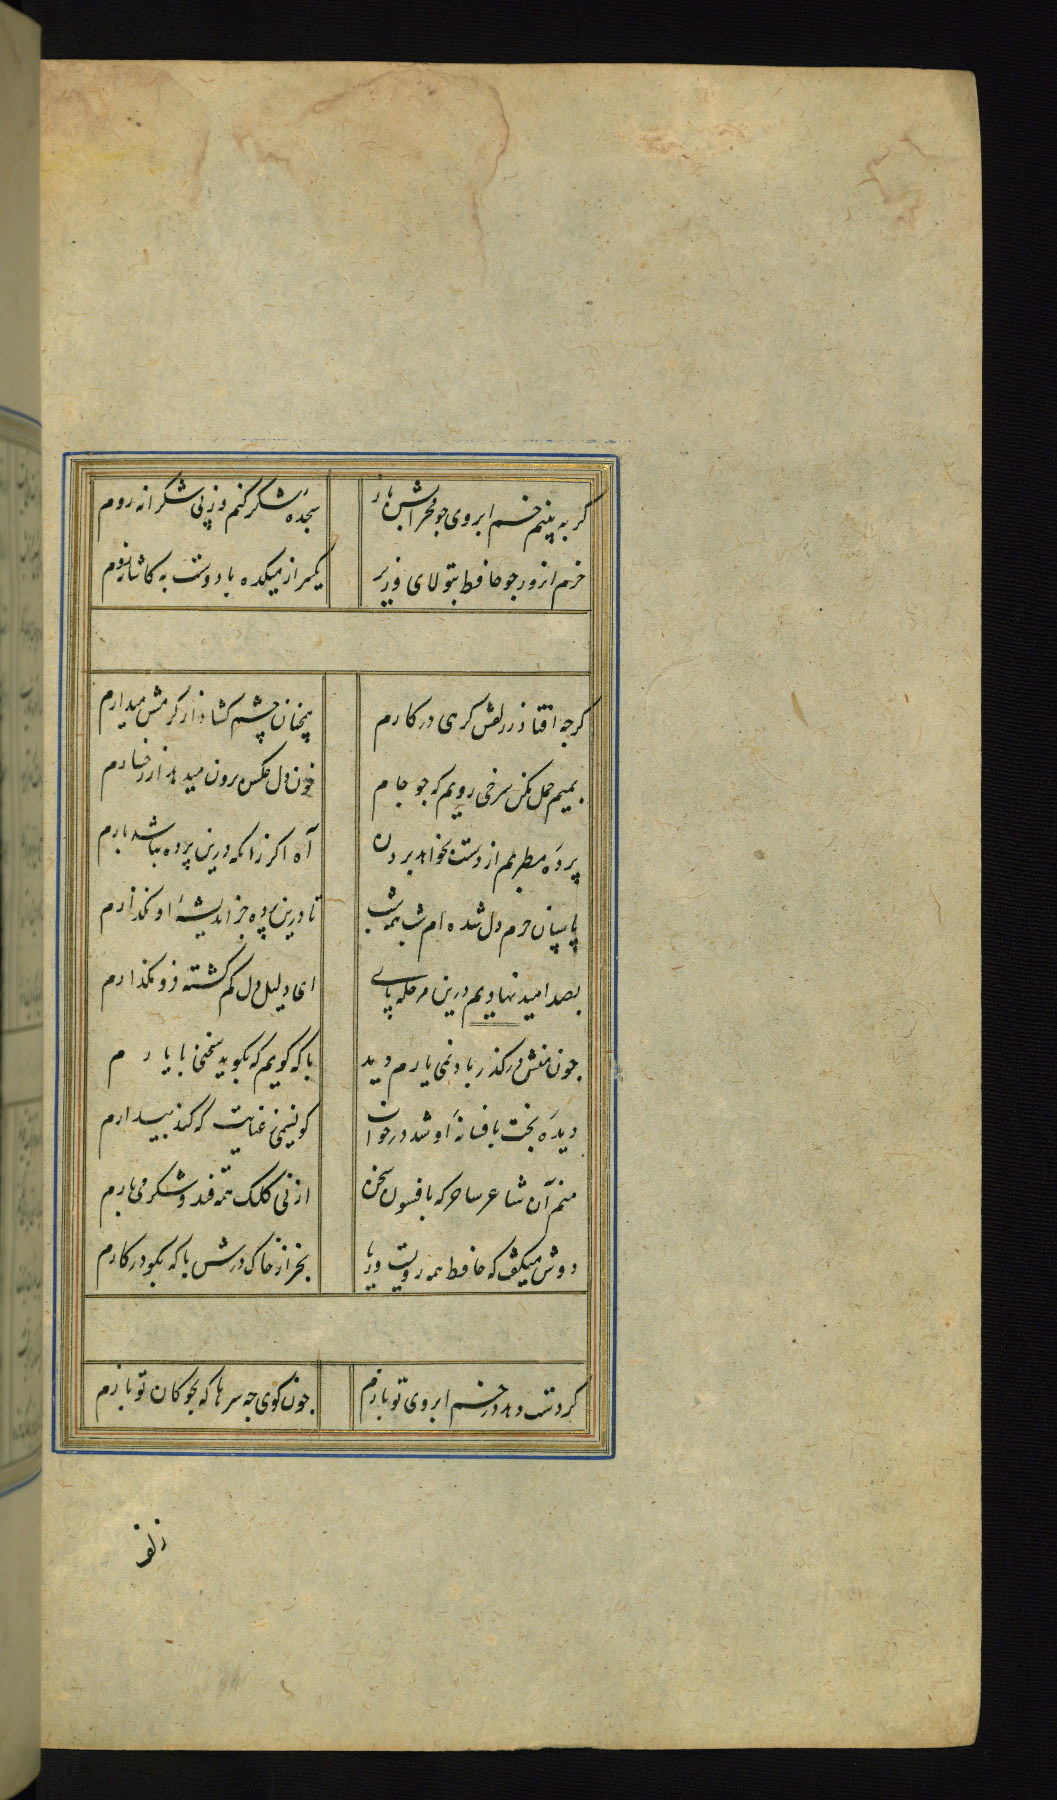 کر به بینم خم ابروی جو محرابش باز سجدهٔ شکر کنم وز پی شکرانه روم
خرم انروز جو حافظ بتولای وزیر یکسر از میکده با دوست به کاشانه روم
کرجه افتاد ز زلفش کرهی در کارم همچنان چشم کشاد از کرمش میدارم
بمیم حمل مکن سرخی رویم که جو جام خون دل عکس برون میدهد از رخسارم
پردهٔ مطربم از دست بخواهد بردن آه اکر زانکه درین پرده نباشد بارم
پاسبان حرم دل شده ام شب همه شب تا درین پرده جز اندیشهٔ او نکذارم
بصد امید نهادیم درین مرحله پای ای دلیل دل کم کشته فرو مکذارم
جون منش در کذر باد نمی یارم دید با که کویم که بکوید سخنی با یارم
دیدهٔ بخت بافسانهٔ او شد در خواب کو نسیمی ز عنایت که کند بیدارم
منم آن شاعر ساحر که بافسون سخن از نی کلک همه قند و شکر می بارم
دوش میکفت که حافظ همه رویست و ریا بجز از خاک درش با که بکو در کارم
کر دست دهد در خم ابروی تو بازم جون کوی جه سرها که بجوکان تو بازم
زلف